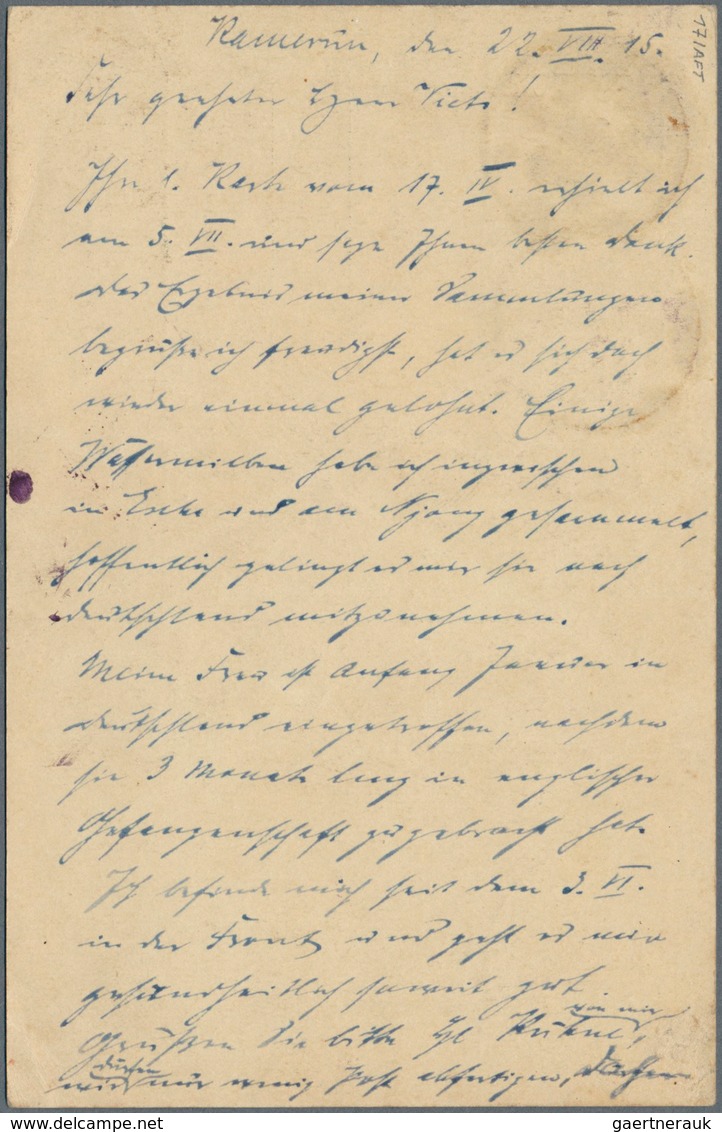 Kamerun, den 22. VIII. 15.
17/AFT
Sehr geehrter Herr Viets!
Ihre l. Karte vom 17. IV. erhielt ich
am 5. VII. und sage Ihnen besten Dank.
Das Ergebnis meiner Sammlungen
begrüße ich freudigst, hat es sich doch
wieder einmal gelohnt. Einige
Wassermilben habe ich inzwischen
in und am Njong gesammelt,
hoffentlich gelingt es mir sie nach
Deutschland mitzunehmen.
Meine Frau ist Anfang Januar in
Deutschland eingetroffen, nachdem
sie 3 Monate lang in englischer
Gefangenschaft zugebracht hat.
Ich befinde mich seit dem 3. VI.
in der Front und geht es mir
gesundheitlich soweit gut.
von mir
Grüßen Sie bitte
dürfen
wir nur wenig Post abfertigen,
gaertnerauk